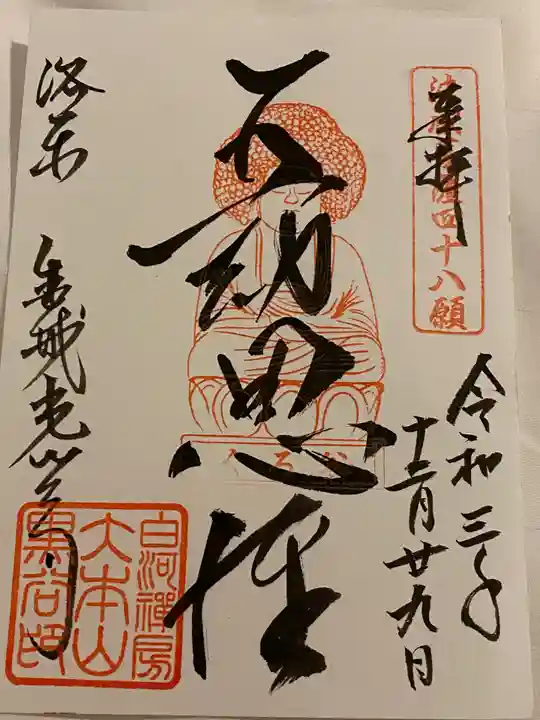 奉拝
四十八願
令和三年
十二月廿九日
五劫思惟
洛東 金戒光明寺
白河禪房
大本山
黒谷印